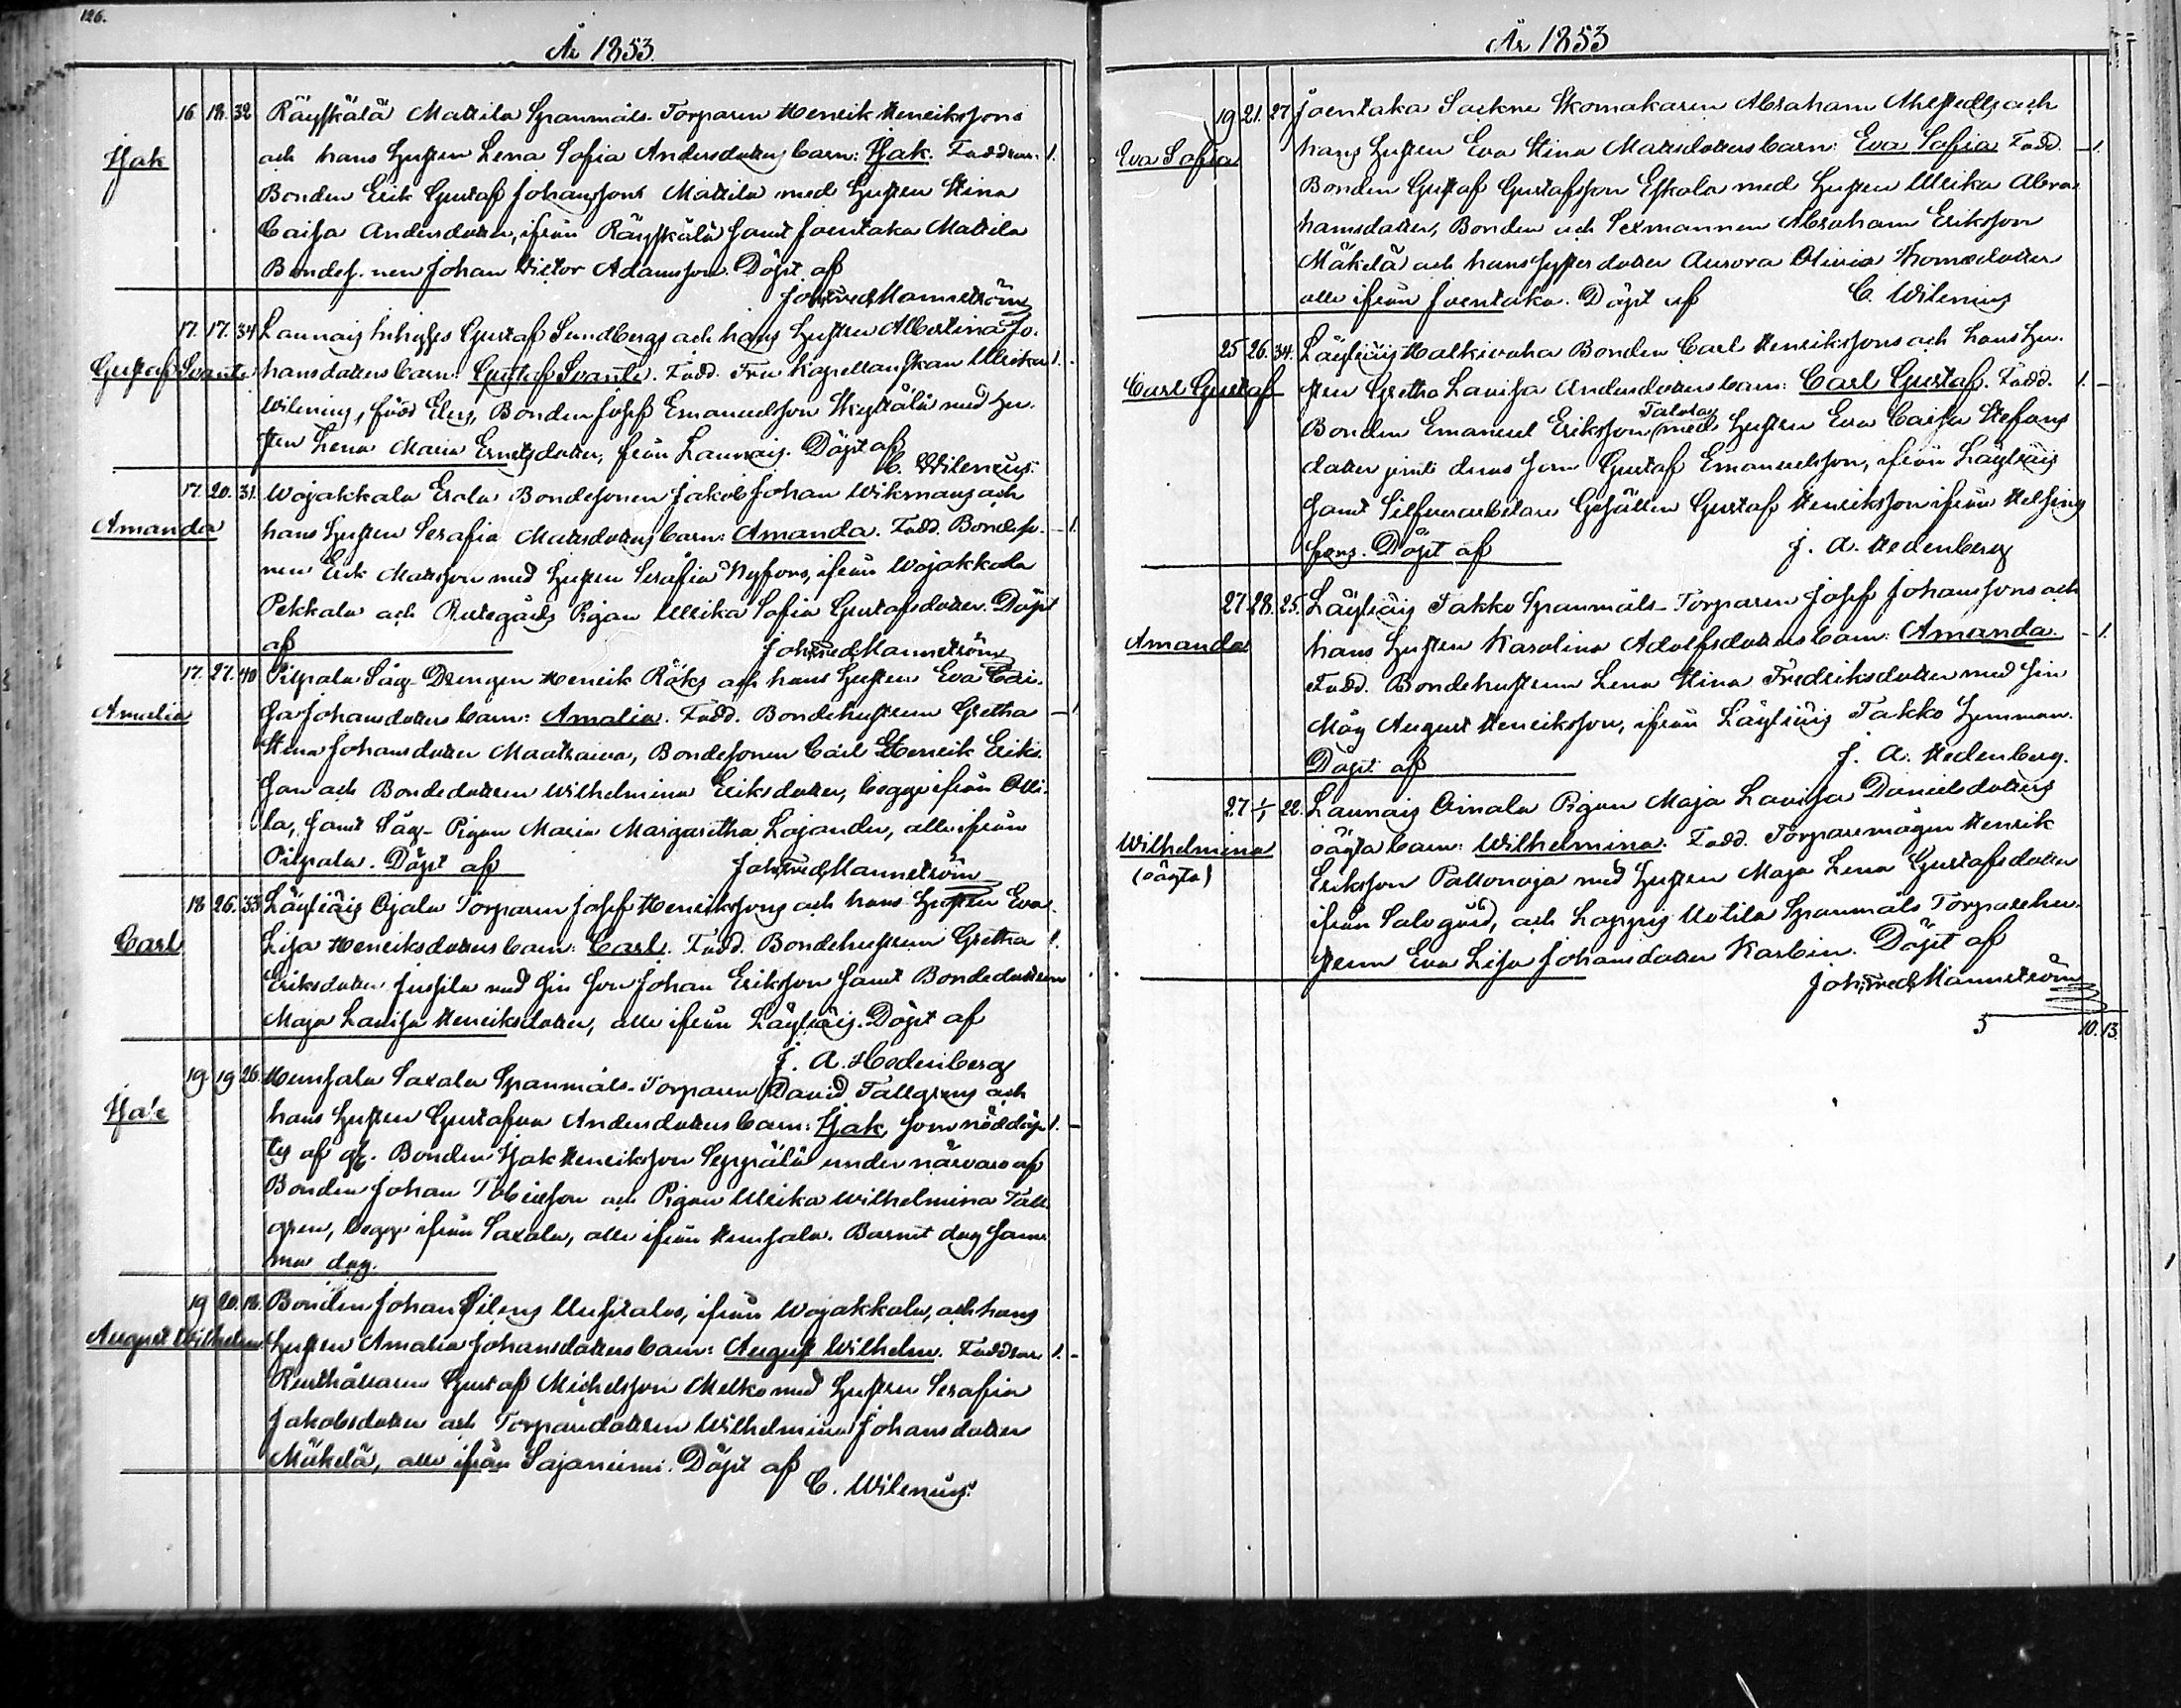 126.
År 1853.
16. 18. 32 Räyskälä Mattila Spanmåls-Torparen Henrik Henrikssons
Isak
och hans hustru Lena Sofia Andersdotters barn: Isak. Faddrar: 1.
Bonden Erik Gustaf Johanssons Mattila med hustru Stina
Caisa Andersdotter, ifrån Räyskälä samt Joentaka Mattila
Bondes. nen Johan Victor Adamsson. Döpt af
Joh. Fred. Mannström
17. 17. 34 Launais Gustaf Sundbergs och hans hustru Albertina Jo-
Gustaf Svante
hansdotters barn: Gustaf Svante. Fadd. Fru Kapellanskan Ulrika 1.
Wilenius, född Elers, Bonden Josef Emanuelsson Skyttälä med hu-
stru Lena Maria Ernstsdotter, från Launais. Döpt af
C. Wilenius.
17. 20. 31. Wojakkala Erola Bondesonen Jakob Johan Wikmans och
Amanda
hans hustru Serafia Mattsdotters barn: Amanda. Fadd. Bondeso- 1.
nen Erik Mattsson med hustru Serafia Nyfors, ifrån Wojakkala
Pekkala och Prestegårds Pigan Ulrika Sofia Gustafsdotter. Döpt
af
Joh. Fred. Mannström
17. 27. 40 Pilpala Såg-Drengen Henrik Röks och hans hustru Eva Cai-
Amalia
sa Johansdotters barn: Amalia. Fadd. Bondehustrun Gretha 1
Stina Johansdotter Maatraiva, Bondesonen Carl Henrik Eriks-
son och Bondedottren Wilhelmina Eriksdotter, begge ifrån Olli-
la, samt Såg-Pigan Maria Margaretha Lojander, alla ifrån
Pilpala. Döpt af
Joh. Fred. Mannström
18 26. 33 Läyliäis Ojala Torparen Josef Henrikssons och hans hustru Eva
Carl
Lisa Henriksdotters barn: Carl. Fadd. Bondehustrun Gretha 1.
Eriksdotter Jussila med sin son Johan Eriksson samt Bondedottren
Maja Lavisa Henriksdotter, alla ifrån Läyliäis. Döpt af
J. A. Hedenberg
19. 19 26 Hunsala Saxala Spanmåls-Torparen David Tallgrens och
Isak
hans hustru Gustafva Andersdotters barn: Isak, som nöddöp- 1.
tes af gl. Bonden Isak Henriksson Seppälä under närvaro af
Bonden Johan Tobiasson och Pigan Ulrika Wilhelmina Tall-
gren, begge ifrån Saxala, alla ifrån Hunsala. Barnet dog sam-
ma dag.
19 20. 18. Bonden Johan Silens Uusitalos, ifrån Wojakkala, och hans
August Wilhelm
hustru Amalia Johansdotters barn: August Wilhelm. Faddrar 1.
Rusthållaren Gustaf Michelsson Melko med hustru Serafia
Jakobsdotter och Torparedottren Wilhelmina Johansdotter
Mäkelä, alla ifrån Sajaniemi. Döpt af
C. Wilenius.
År 1853
19 21. 27 Joentaka Sockne Skomakaren Abraham Ahlstedts och
Eva Sofia
hans hustru Eva Stina Mattsdotters barn: Eva Sofia Fadd. 1.
Bonden Gustaf Gustafsson Eskola med hustru Ulrika Abra-
hamsdotter, Bonden och Sexmannen Abraham Eriksson
Mäkelä och hans systerdotter Aurora Olivia Thomsdotter
alla ifrån Joentaka. Döpt af
C. Wilenius
25 26. 34. Läyliäis Halkivaha Bonden Carl Henrikssons och hans hu-
Carl Gustaf
stru Gretha Lavisa Andersdotters barn: Carl Gustaf. Fadd. 1.
Talola
Bonden Emanuel Eriksson med hustru Eva Caisa Stefans-
dotter jemte deras son Gustaf Emanuelsson, ifrån Läyliäis
samt Silfverarbetare Gesällen Gustaf Henriksson ifrån Helsing-
fors. Döpt af
J. A. Hedenberg
27 28. 25. Läyliäis Takko Spanmåls-Torparen Josef Johanssons och
Amanda
hans hustru Karolina Adolfsdotters barn: Amanda. 1.
Fadd. Bondehustrun Lena Stina Fredriksdotter med sin
Måg August Henriksson, ifrån Läyliäis Takko hemman.
Döpt af
J. A. Hedenberg.
27 1/1 22. Launais Ainala Pigan Maja Lavisa Danielsdotters
Wilhelmina
(oägta)
oägta barn: Wilhelmina. Fadd. Torparemågen Henrik
Eriksson Pattonoja med hustru Maja Lena Gustafsdotter
ifrån Salo gård, och Loppis Uotila Spanmåls Torparehu-
strun Eva Lisa Johansdotter Karbin. Döpt af
Joh. Fred. Mannström
3
10. 13.